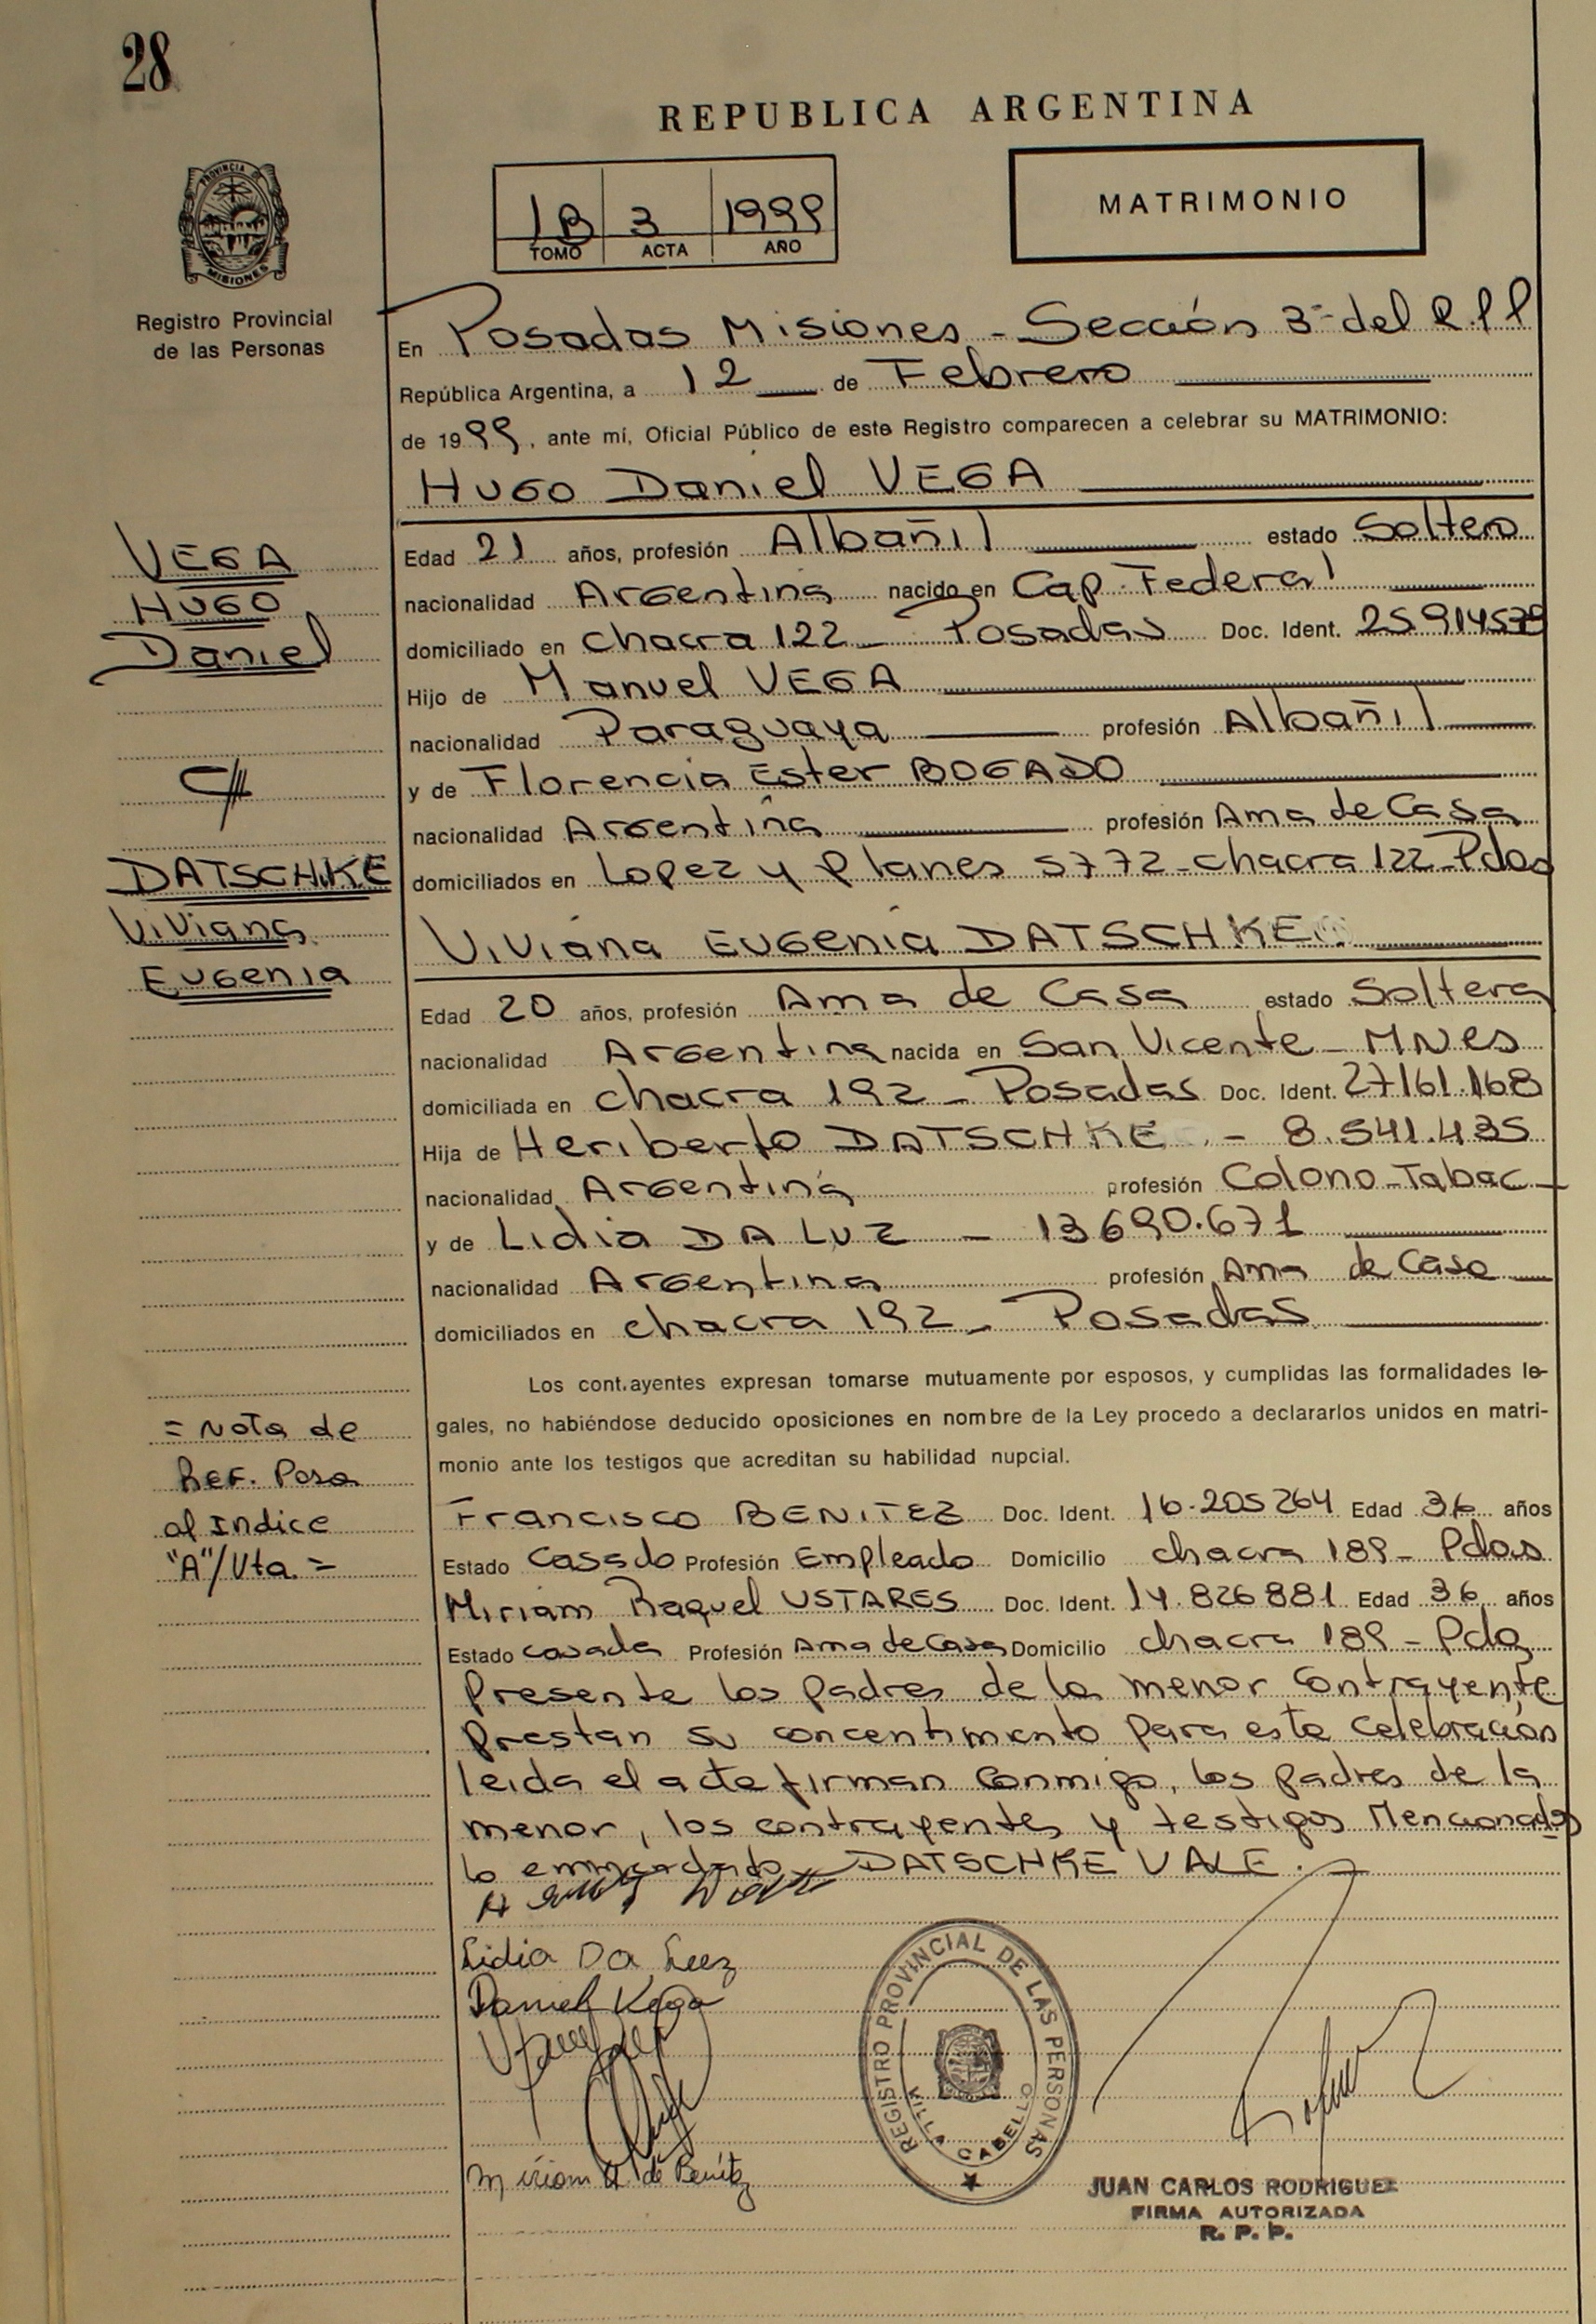 28
REPUBLICA ARGENTINA
PROVINCIA DE
MISIONES
Registro Provincial
de las Personas
1B 3 1999
TOMO ACTA AÑO
MATRIMONIO
En Posadas Misiones - Sección 3ª del R.P.P
República Argentina, a 12 de Febrero
de 1999, ante mí, Oficial Público de este Registro comparecen a celebrar su MATRIMONIO:
Hugo Daniel VEGA
VEGA
HUGO
Daniel
Edad 21 años, profesión Albañil estado Soltero
nacionalidad Argentina nacido en Cap. Federal
domiciliado en chacra 122 - Posadas Doc. Ident.
Hijo de Manuel VEGA
nacionalidad Paraguaya profesión Albañil
y de Florencia Ester BOGADO
nacionalidad Argentina profesión Ama de Casa
domiciliados en Lopez y Planes 5772 - chacra 122 - Pdas
DATSCHKE
Viviana
Eugenia
Viviana Eugenia DATSCHKE
Edad 20 años, profesión Ama de Casa estado Soltera
nacionalidad Argentina nacida en San Vicente - MNES
domiciliada en chacra 192 - Posadas Doc. Ident. 27161.168
Hija de Heriberto DATSCHKE - 8.541.435
nacionalidad Argentina profesión Colono-Tabac
y de Lidia DA LUZ - 13690.671
nacionalidad Argentina profesión Ama de Casa
domiciliados en chacra 192 - Posadas
Los contrayentes expresan tomarse mutuamente por esposos, y cumplidas las formalidades le-
gales, no habiéndose deducido oposiciones en nombre de la Ley procedo a declararlos unidos en matri-
monio ante los testigos que acreditan su habilidad nupcial.
= Nota de
Ref. Pasa
al Indice
"A"/Vta. =
Francisco BENITEZ Doc. Ident. 16.205264 Edad 36 años
Estado Casado Profesión Empleado Domicilio chacra 189 - Pdas
Miriam Raquel USTARES Doc. Ident. 14.826881 Edad 36 años
Estado casada Profesión Ama de Casa Domicilio chacra 189 - Pdas
Presente los padres de la menor contrayente
prestan su concentimiento para esta celebración
leida el acta firman conmigo, los padres de la
menor, los contrayentes y testigos Mencionados
lo enmendado DATSCHKE VALE.-
Lidia Da Luz
Daniel Vega
Miriam U. de Benítez
REGISTRO PROVINCIAL DE LAS PERSONAS
VILLA CABELLO
JUAN CARLOS RODRIGUEZ
FIRMA AUTORIZADA
R. P. P.